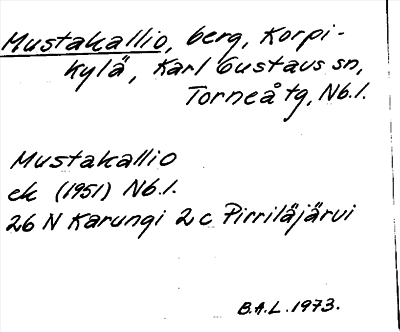 Mustakallio, berg, Korpi-
kylä, Karl Gustavs sn,
Torneå tg, Nb.l.
Mustakallio
ek (1951) Nb.l.
26 N Karungi 2 c Pirriläjärvi
B.A.L. 1973.